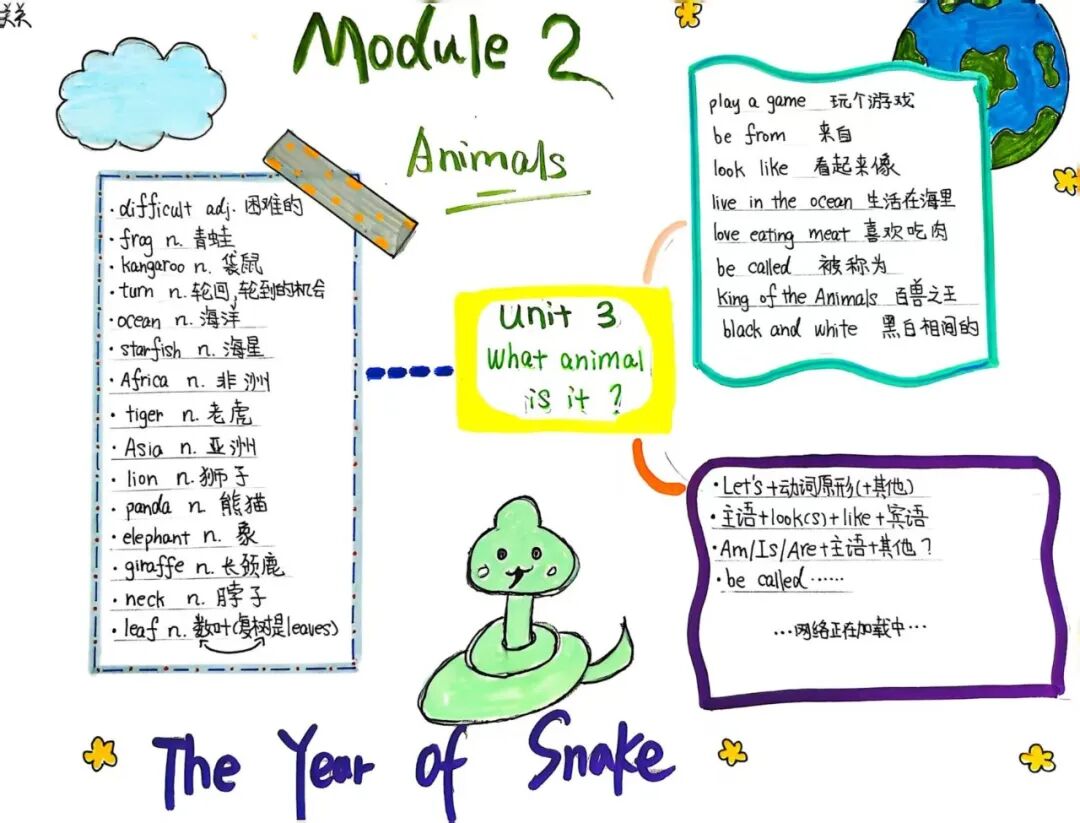 Module 2
Animals
·difficult adj. 困难的
·frog n. 青蛙
·kangaroo n. 袋鼠
·turn n. 轮回,轮到的机会
·ocean n. 海洋
·starfish n. 海星
·Africa n. 非洲
·tiger n. 老虎
·Asia n. 亚洲
·lion n. 狮子
·panda n. 熊猫
·elephant n. 象
·giraffe n. 长颈鹿
·neck n. 脖子
·leaf n. 数叶(复树是leaves)
Unit 3
What animal
is it ?
play a game 玩个游戏
be from 来自
look like 看起来像
live in the ocean 生活在海里
love eating meat 喜欢吃肉
be called 被称为
king of the Animals 百兽之王
black and white 黑白相间的
·Let's+动词原形(+其他)
·主语+look(s)+like+宾语
·Am/Is/Are+主语+其他？
·be called……
…网络正在加载中…
The Year of Snake